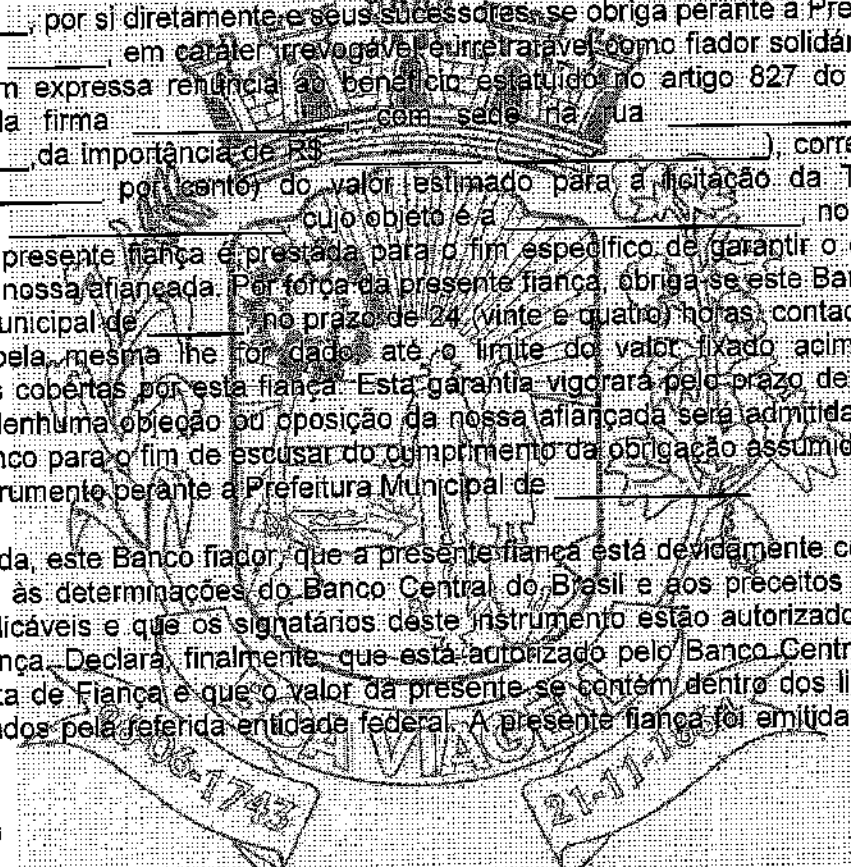 ____, por si diretamente e seus sucessores, se obriga perante a Pre
________, em caráter irrevogável e irretratável como fiador solidár
m expressa renúncia ao benefício estatuído no artigo 827 do
la firma ________________, com sede na rua ____________
____,da importância de R$ ____________ (____________________), corre
________ por cento) do valor estimado para a licitação da T
____________________ cujo objeto é a ____________________, no
presente fiança é prestada para o fim específico de garantir o
nossa afiançada. Por força da presente fiança, obriga-se este Ban
unicipal de ________, no prazo de 24 (vinte e quatro) horas, contad
pela mesma lhe for dado, até o limite do valor fixado acim
s cobertas por esta fiança. Esta garantia vigorará pelo prazo de
Nenhuma objeção ou oposição da nossa afiançada será admitida
nco para o fim de escusar do cumprimento da obrigação assumid
rumento perante a Prefeitura Municipal de ______________
da, este Banco fiador, que a presente fiança está devidamente c
às determinações do Banco Central do Brasil e aos preceitos
licáveis e que os signatários deste instrumento estão autorizado
nça. Declara, finalmente, que está autorizado pelo Banco Centr
ta de Fiança e que o valor da presente se contém dentro dos li
ados pela referida entidade federal. A presente fiança foi emitida
BOA VIAGEM
-06-1743
21-11-1864